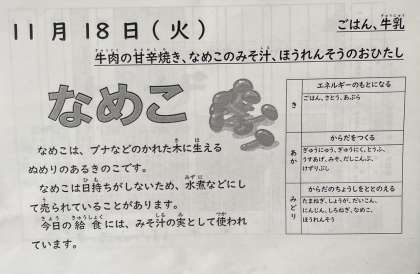 11月18日(火)
ごはん、牛乳
牛肉の甘辛焼き、なめこのみそ汁、ほうれんそうのおひたし
なめこ
なめこは、ブナなどのかれた木に生える
ぬめりのあるきのこです。
なめこは日持ちがしないため、水煮などにし
て売られていることがあります。
今日の給食には、みそ汁の実として使われ
ています。
エネルギーのもとになる
き
ごはん、さとう、あぶら
からだをつくる
あか
ぎゅうにゅう、ぎゅうにく、とうふ、
うすあげ、みそ、だしこんぶ、
けずりぶし
からだのちょうしをととのえる
みどり
たまねぎ、しょうが、だいこん、
にんじん、しろねぎ、なめこ、
ほうれんそう